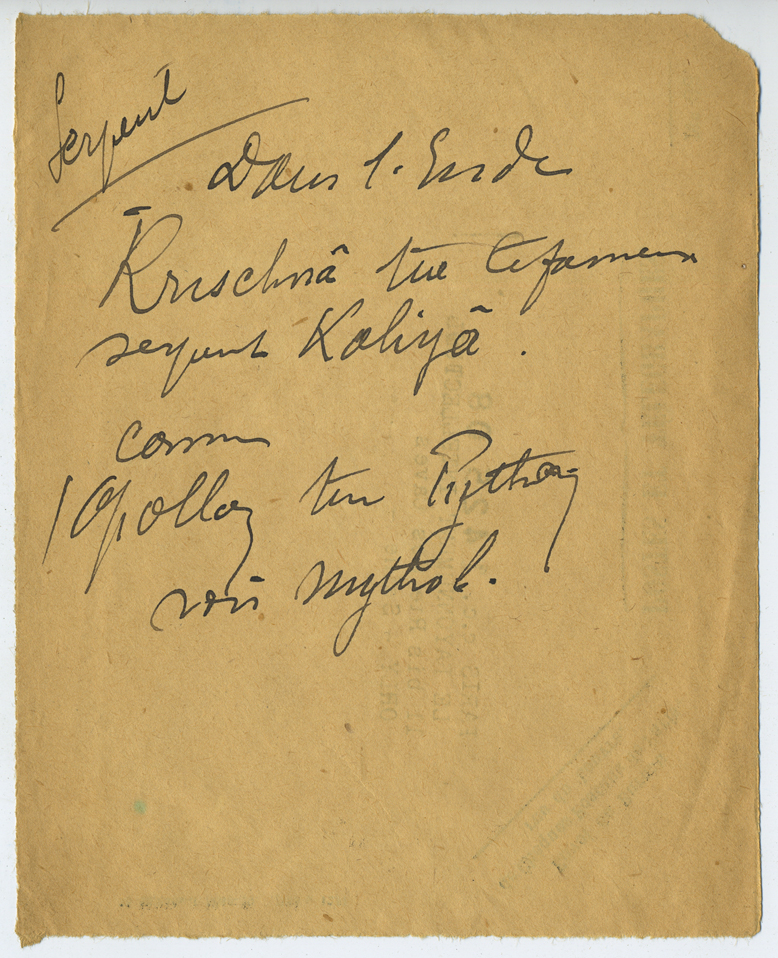 Serpent
Dans l'Inde
Krischnâ tue le fameux
serpent Kaliyâ.
comme
Apollon tua Python
voir mythol.